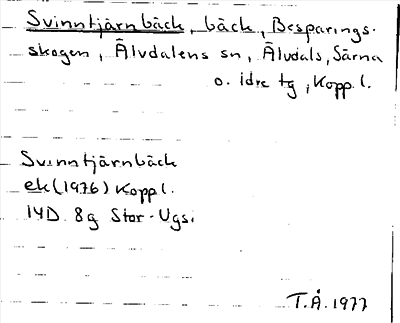 Svinntjärnbäck, bäck, Besparings-
skogen, Älvdalens sn, Älvdals, Särna
o. Idre tg, Kopp l.
Svinntjärnbäck
ek (1976) Koppl.
14D 8g Stor-Ugsi
T.Å. 1977